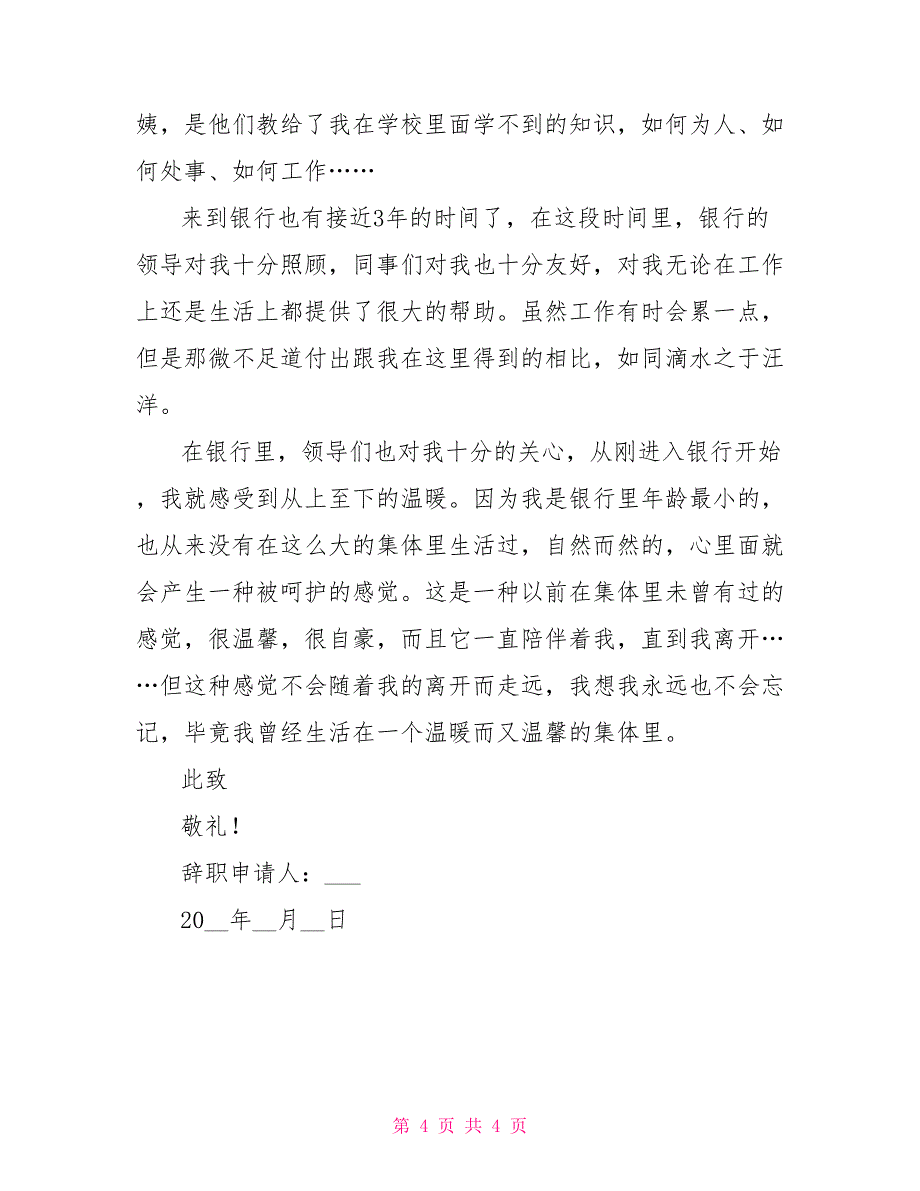 姨，是他们教给了我在学校里面学不到的知识，如何为人、如
何处事、如何工作……
来到银行也有接近3年的时间了，在这段时间里，银行的
领导对我十分照顾，同事们对我也十分友好，对我无论在工作
上还是生活上都提供了很大的帮助。虽然工作有时会累一点，
但是那微不足道付出跟我在这里得到的相比，如同滴水之于汪
洋。
在银行里，领导们也对我十分的关心，从刚进入银行开始
，我就感受到从上至下的温暖。因为我是银行里年龄最小的，
也从来没有在这么大的集体里生活过，自然而然的，心里面就
会产生一种被呵护的感觉。这是一种以前在集体里未曾有过的
感觉，很温馨，很自豪，而且它一直陪伴着我，直到我离开…
…但这种感觉不会随着我的离开而走远，我想我永远也不会忘
记，毕竟我曾经生活在一个温暖而又温馨的集体里。
此致
敬礼！
辞职申请人：___
20__年__月__日
第 4 页 共 4 页